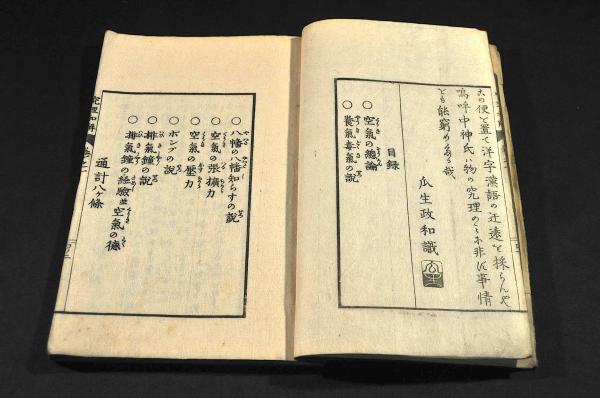 この便を置て洋字漢語の迂遠を採らんや
嗚呼中神氏ハ物の究理のミ小非ず事情
とも能窮めたる哉
瓜生政和識
目録
○空氣の總論
○養氣毒氣の説
○八幡の八幡知らずの説
○空氣の張擴力
○空氣の壓力
○ポンプの説
○排氣鐘の説
○排氣鐘の經驗並空氣の德
通計八ケ條